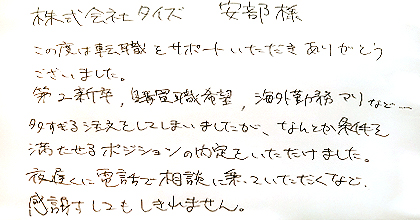 株式会社タイズ 安部様
この度は転職をサポートいただきありがとう
ございました。
第2新卒, 職希望, 海外勤務アリなど…
多すぎる注文をしてしまいましたが、なんとか条件を
満たせるポジションの内定をいただけました。
夜遅くに電話で相談に乗っていただくなど、
感謝してもしきれません。